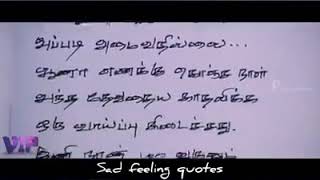 அப்படி அமைவதில்லை...
ஆனா எனக்கு கொஞ்ச நாள்
அந்த தேவதைய காதலிக்க
ஒரு வாய்ப்பு கிடைச்சது.
இனி நான்
VIP
Sad feeling quotes